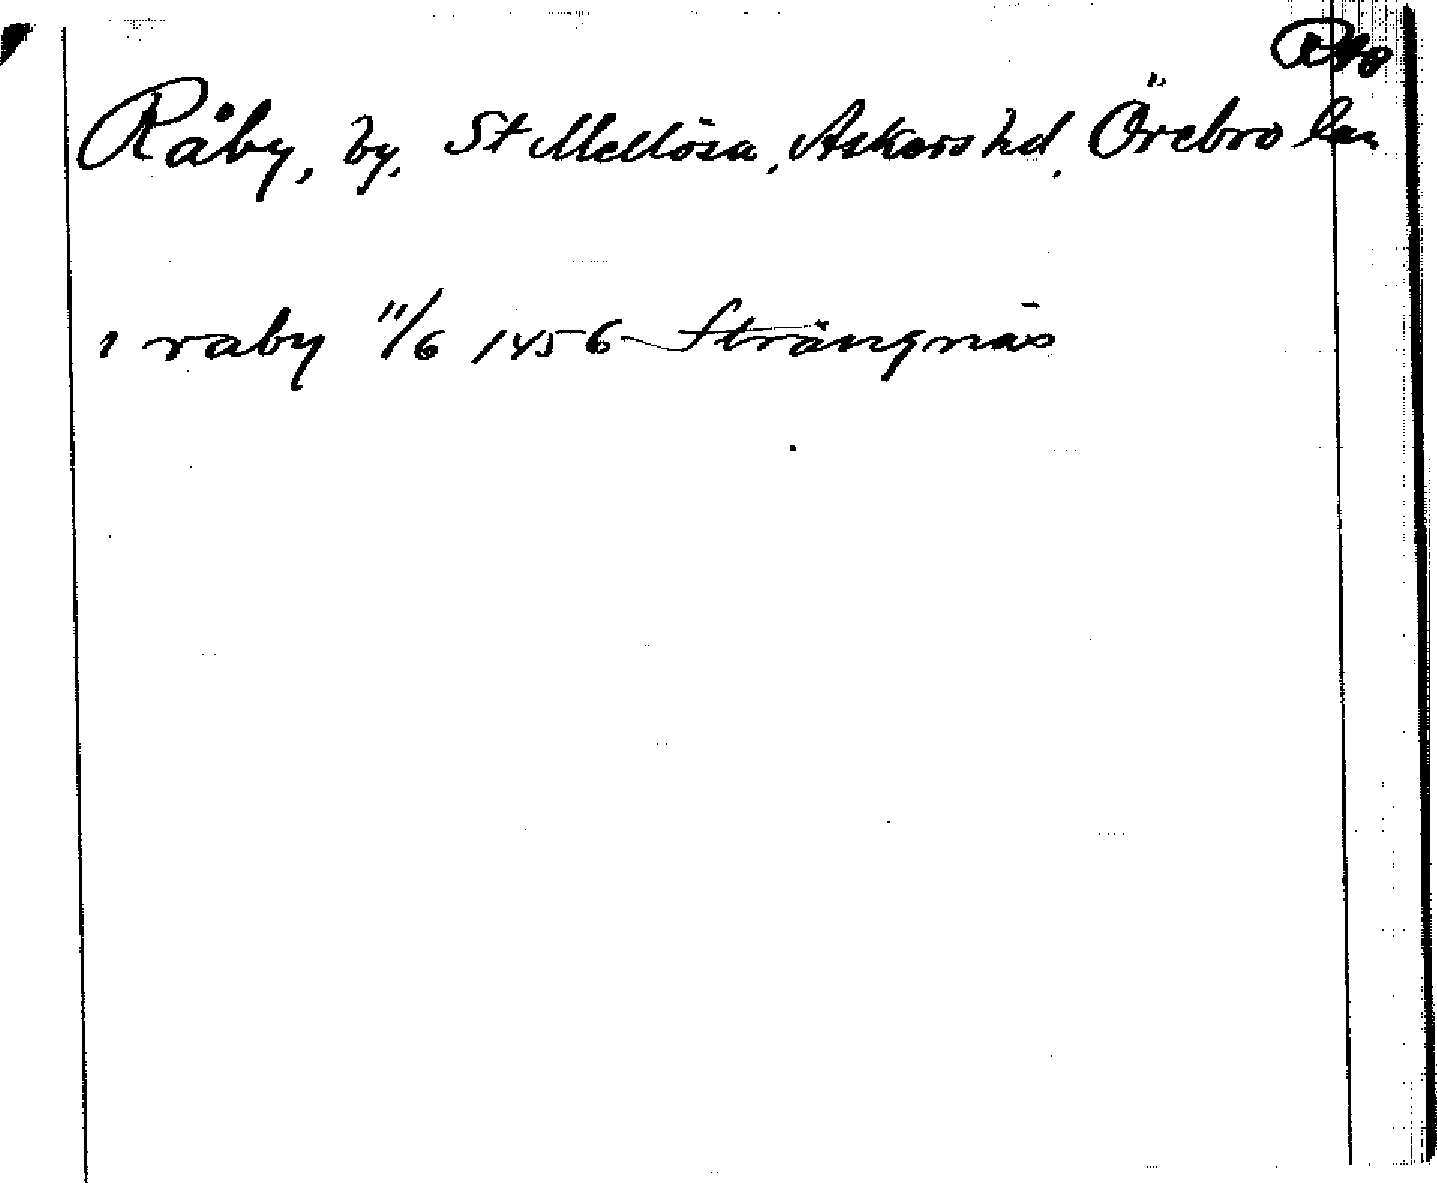 Råby, by, St Mellösa, Askers hd, Örebro län
i raby 11/6 1456 Strängnäs